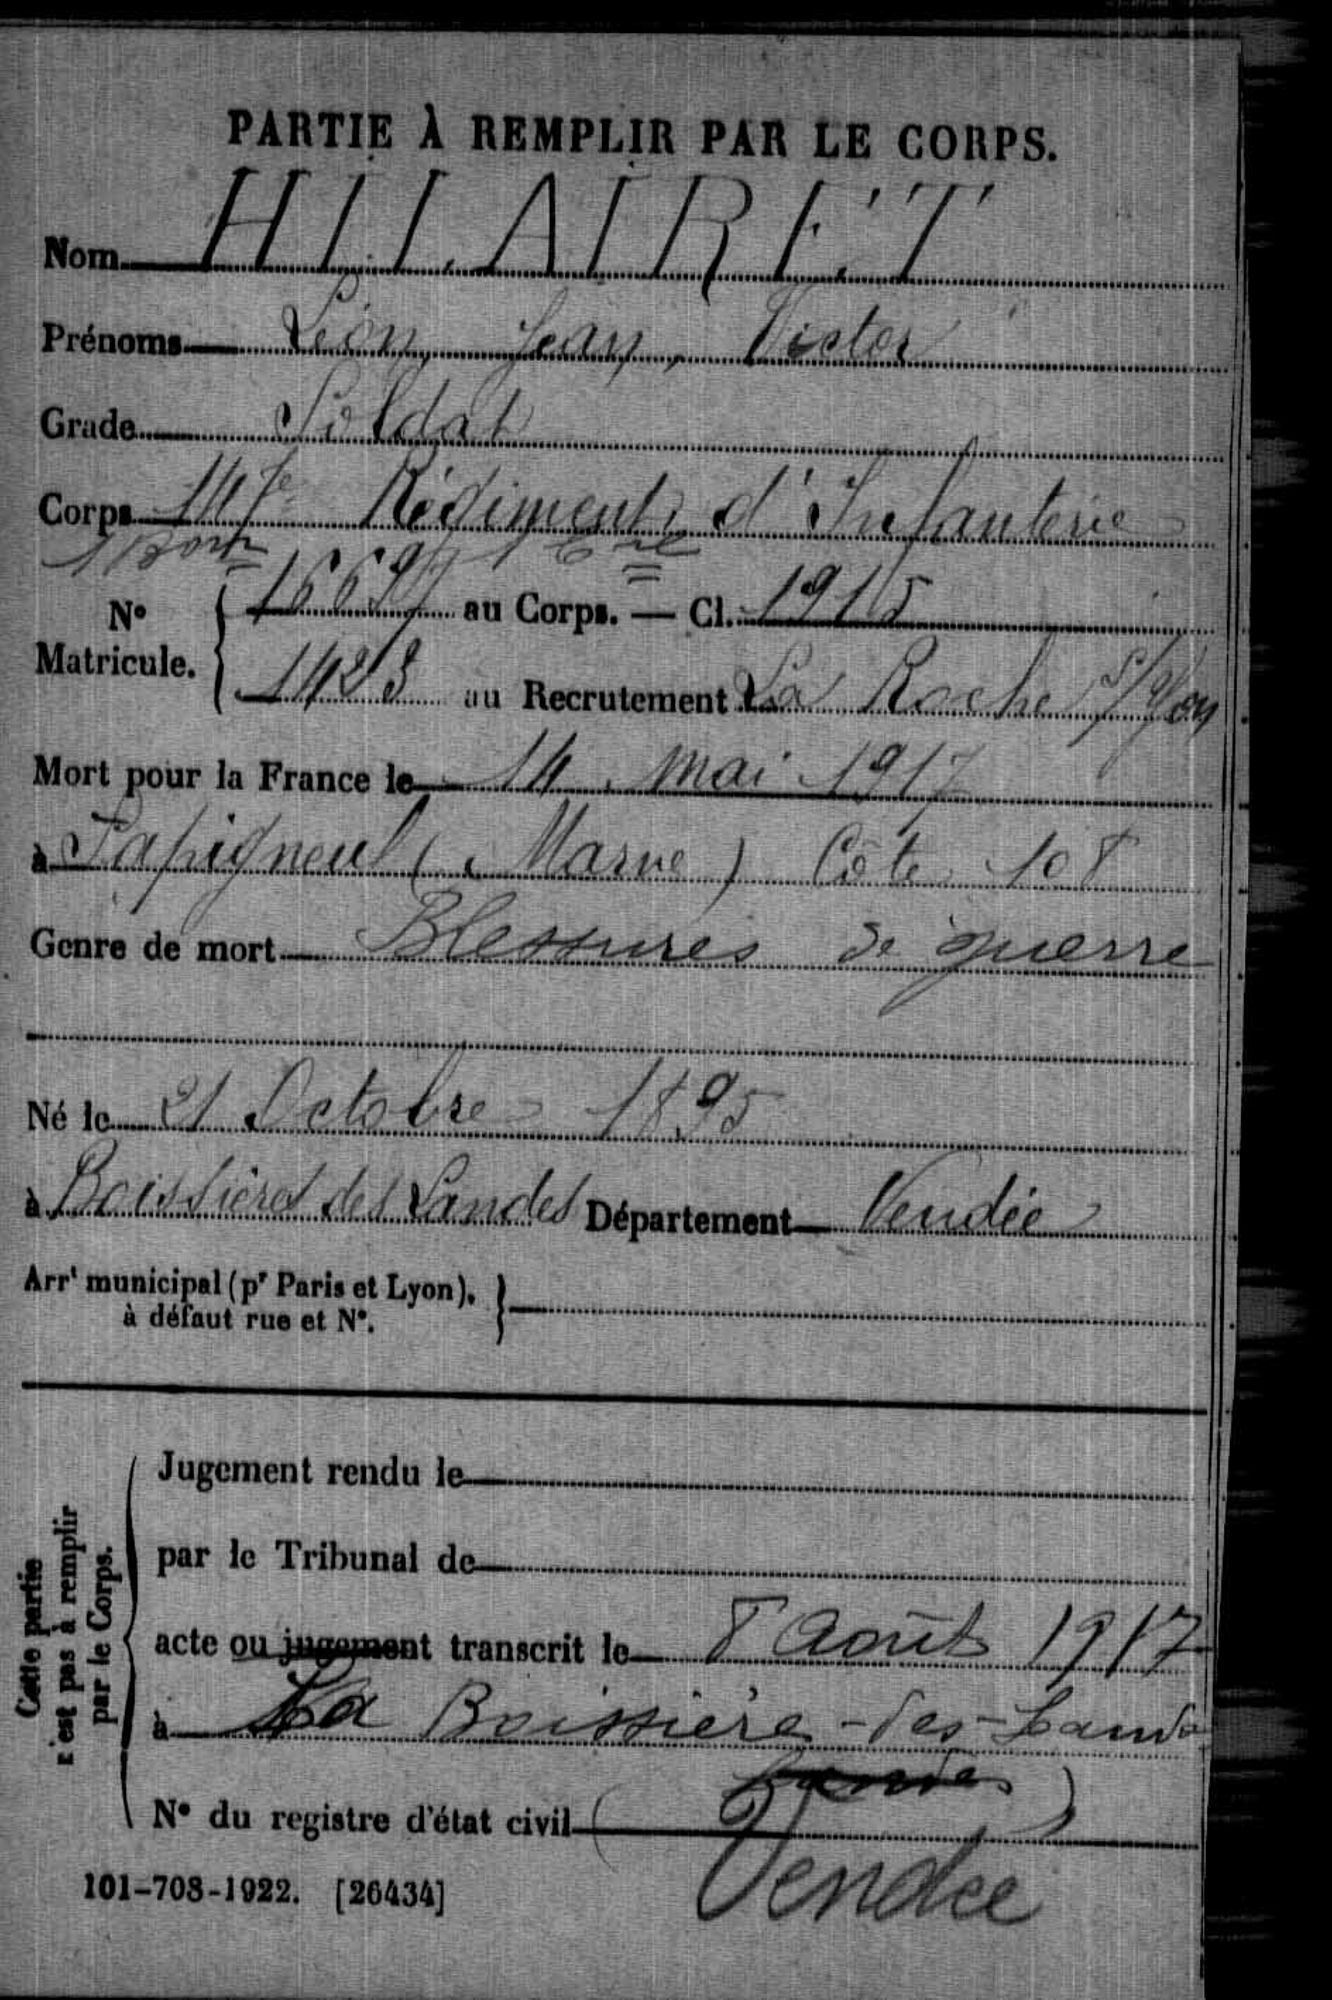 PARTIE À REMPLIR PAR LE CORPS.
Nom HILAIRET
Prénoms Léon, Jean, Victor
Grade Soldat
Corps 147e Régiment d'Infanterie
N° Matricule. { 16697 au Corps. — Cl. 1915
1423 au Recrutement La Roche s/Yon
Mort pour la France le 14 mai 1917
à Sapigneul (Marne) Côte 108
Genre de mort Blessures de guerre
Né le 21 Octobre 1895
à Boissière des Landes Département Vendée
Arrt municipal (pr Paris et Lyon),
à défaut rue et N°.
Cette partie
n'est pas à remplir
par le Corps.
Jugement rendu le
par le Tribunal de
acte ou jugement transcrit le 8 août 1917
à La Boissière-des-Landes
Landes
N° du registre d'état civil ( )
Vendée
101-708-1922. [26434]